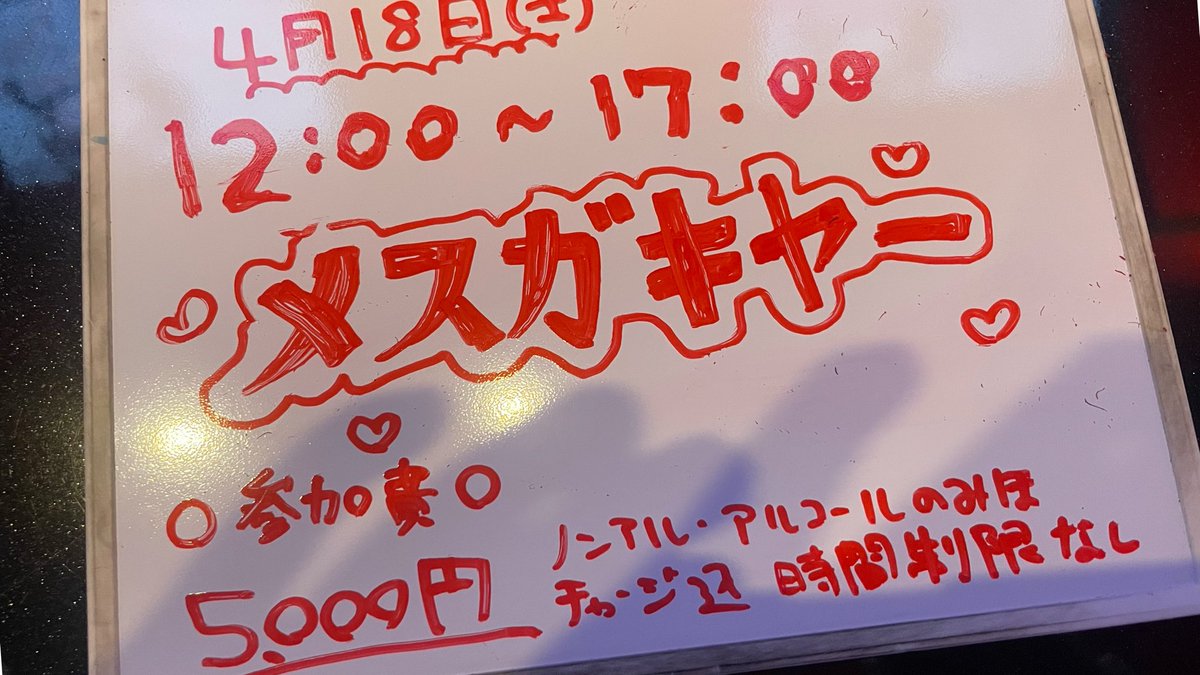 4月18日(土)
12:00～17:00
メスガキャー
○参加費○
5,000円
ノンアル・アルコールのみほ
チャージ込 時間制限なし